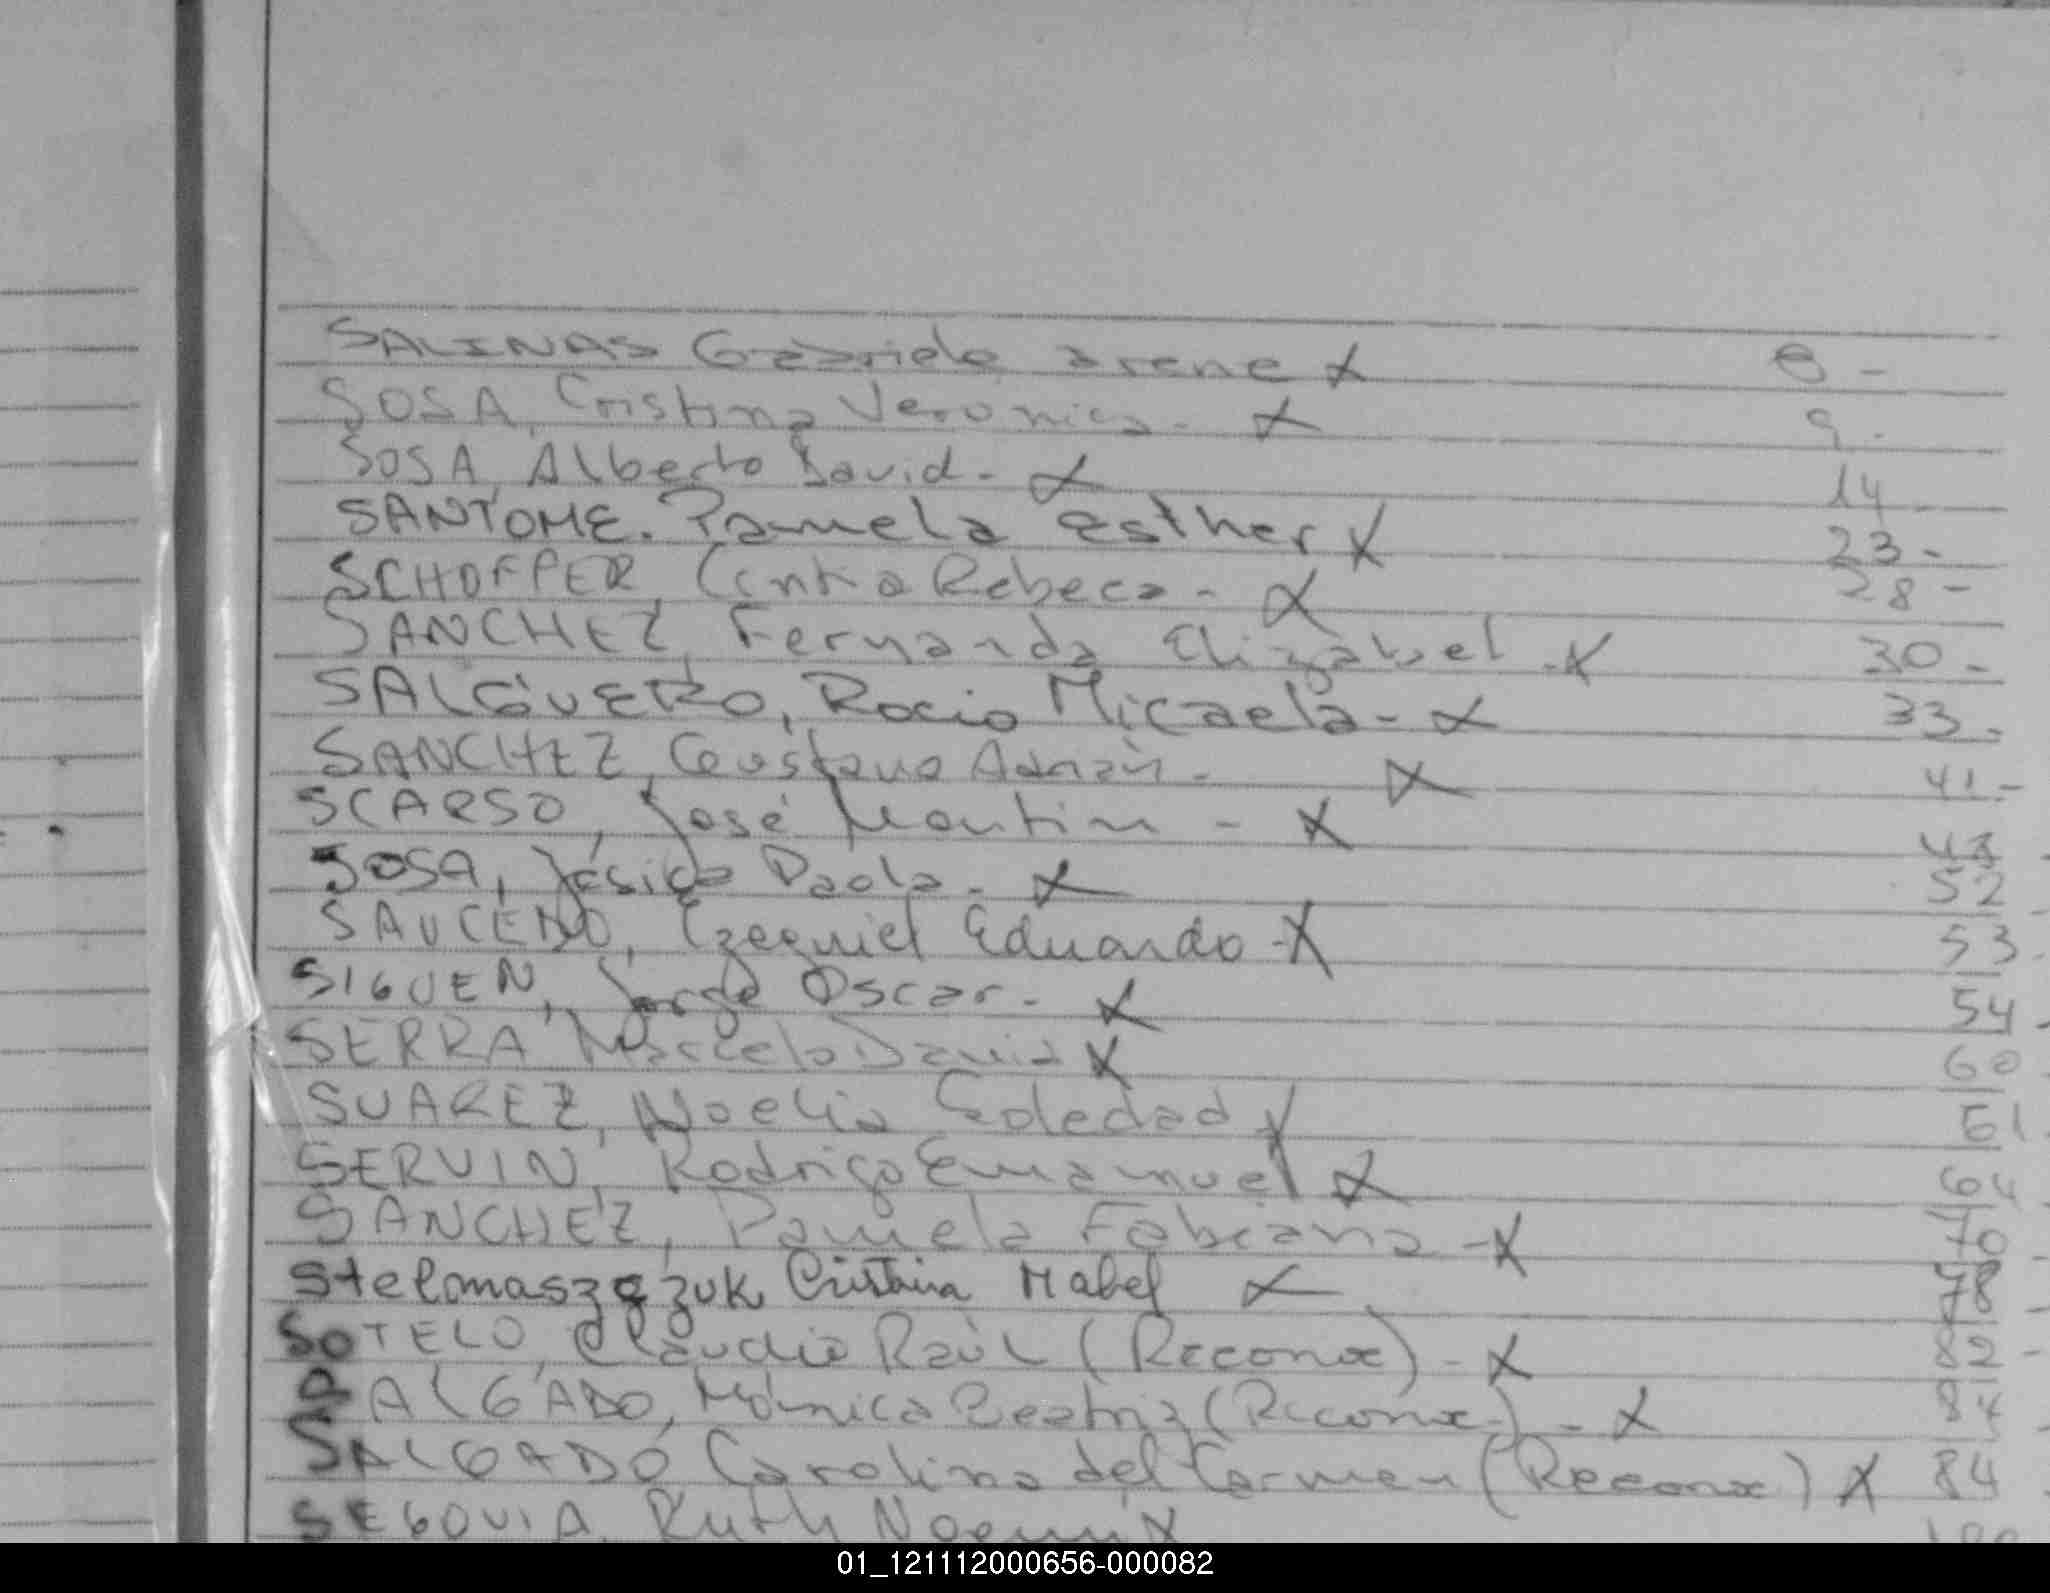 SALINAS Gabriela Irene X 8 -
SOSA, Cristina Veronica - X 9 -
SOSA, Alberto David - X 14
SANTOME. Pamela Esther X 23 -
SCHOFFER, Cintia Rebeca - X 28 -
SANCHEZ, Fernanda Elizabet - X 30 -
SALGUERO, Rocio Micaela - X 33 -
SANCHEZ, Gustavo Adrián - X 41 -
SCARSO, José Martin - X
SOSA, Yésica Paola - X 52
SAUCEDO, Ezequiel Eduardo - X 53 -
SIGUEN, Jorge Oscar - X 54 -
SERRA Marcelo David X 60
SUAREZ, Noelia Soledad X 61
SERVIN, Rodrigo Emanuel X 64
SANCHEZ, Pamela Fabiana - X 70 -
Stelmaszczuk Cristina Mabel X 78 -
SOTELO, Claudio Raúl (Reconoc) - X 82 -
SALGADO, Mónica Beatriz (Reconoc) - X 84 -
SALGADO Carolina del Carmen (Reconoc) X 84
SEGOVIA, Ruth Noemi X
01_121112000656-000082